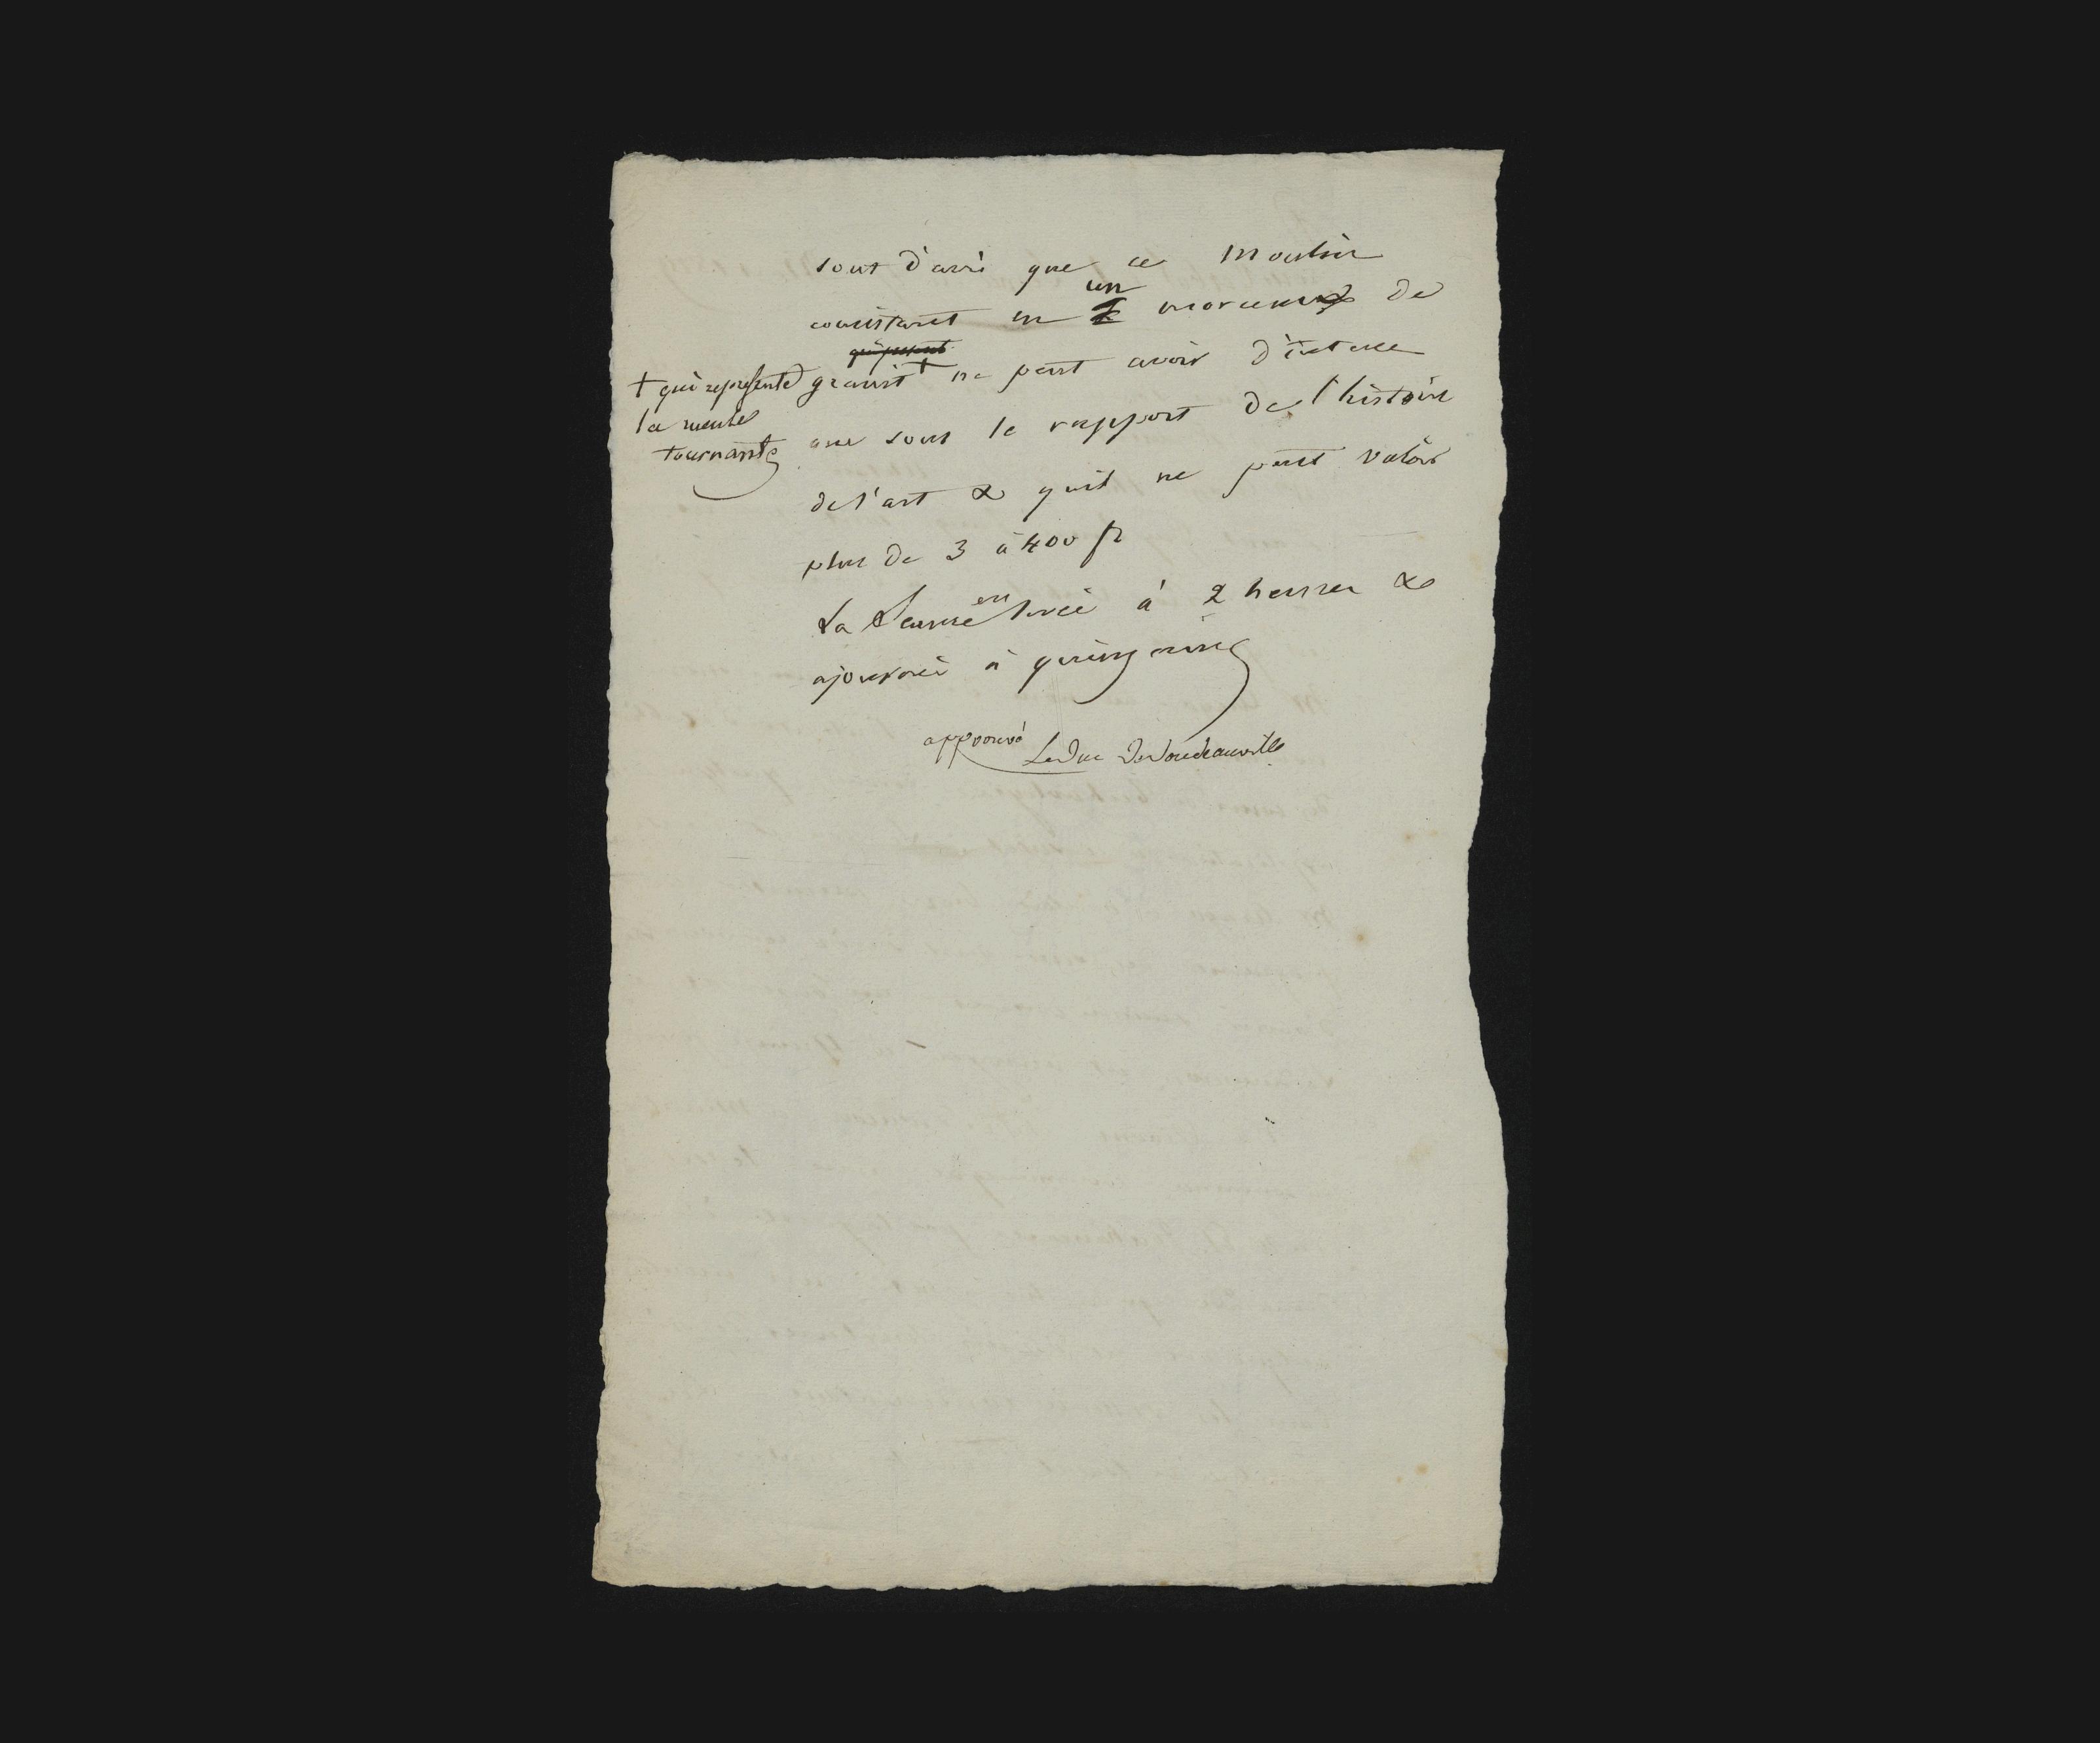 sont d'avis que ce Moulin
consistant en un morceau de
granit + ne peut avoir d'interet
+ qui represente
la meule
tournante
que sous le rapport de l'histoire
de l'art & qu'il ne peut valoir
plus de 3 à 400 fr
La Seance est levée à 2 heures &
ajournée à quinzaine
approuvé Le Duc De Doudeauville